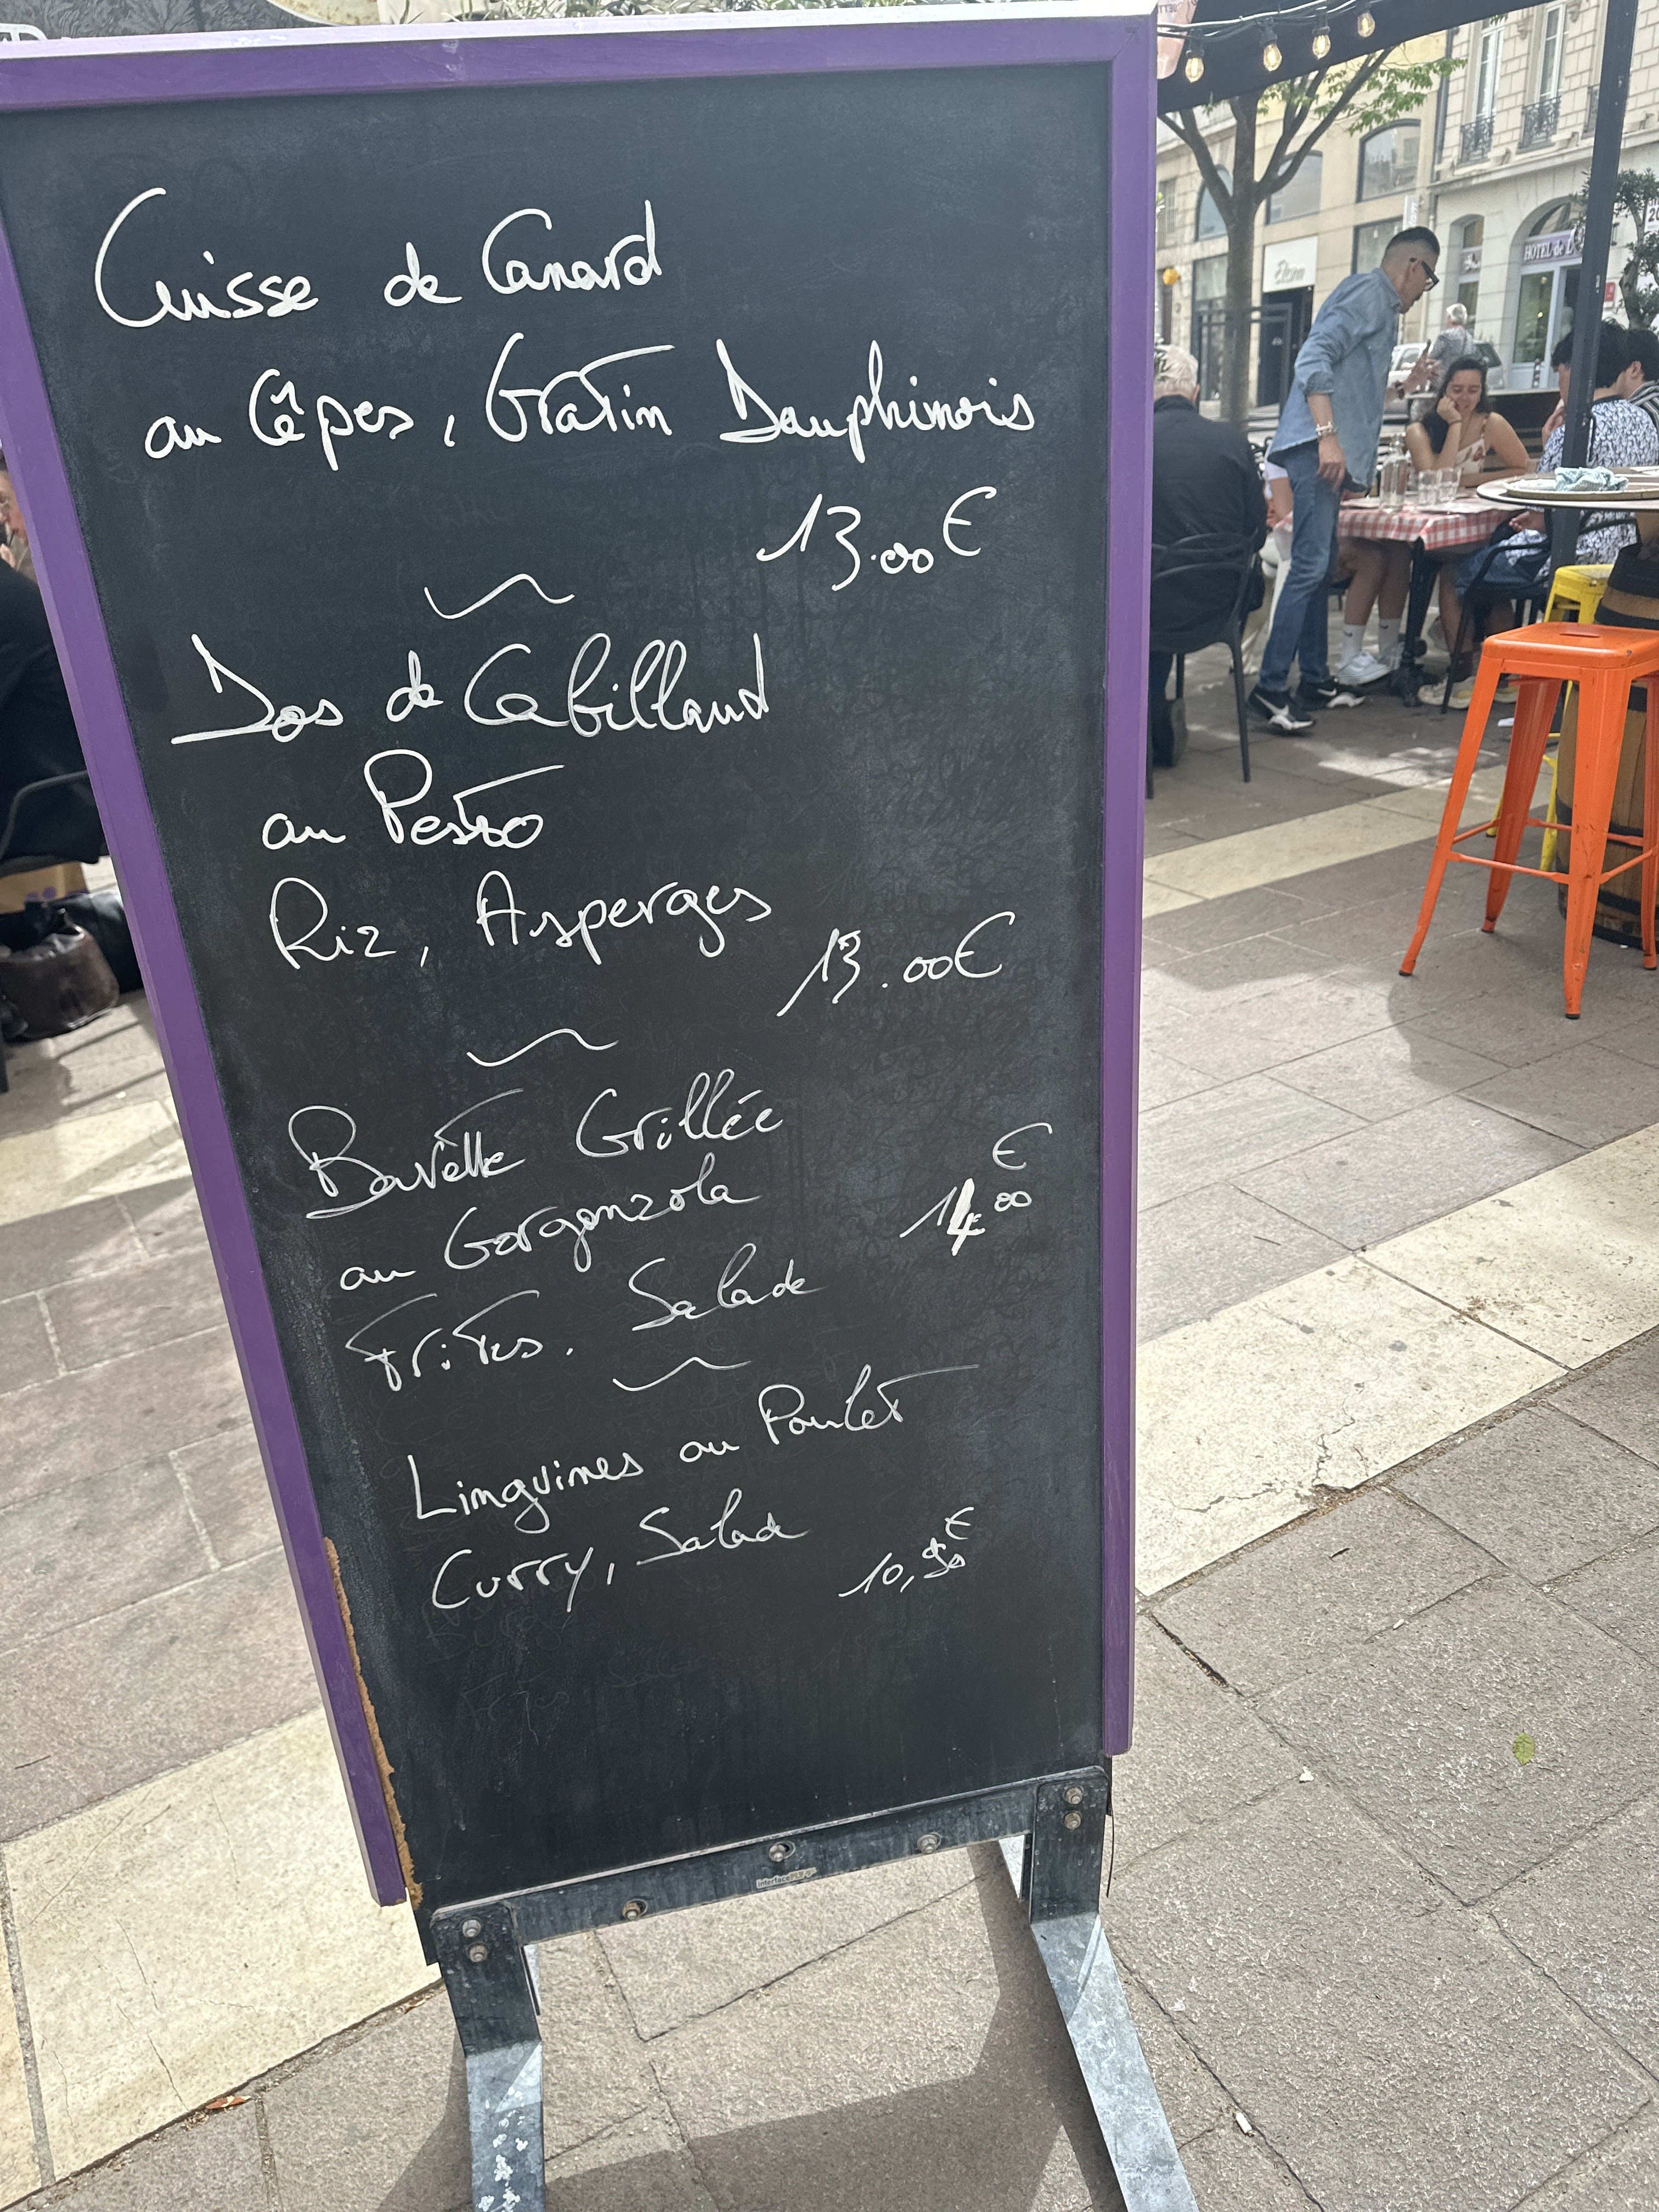 Cuisse de Canard
au Cêpes, Gratin Dauphinois
13.00€
Dos de Cabillaud
au Pesto
Riz, Asperges
13.00€
Bavette Grillée
au Gorgonzola
14.00€
Frites. Salade
Linguines au Poulet
Curry, Salade
10,90€
HOTEL de